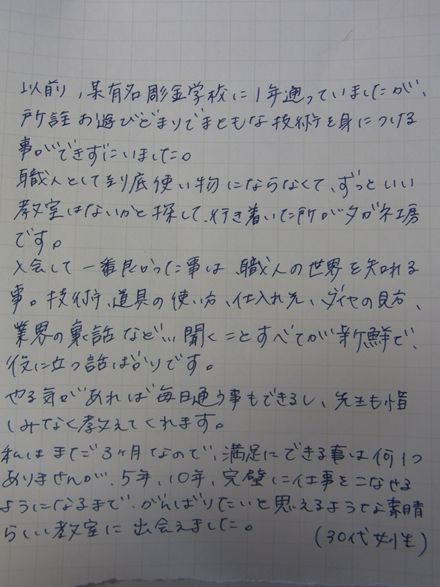 以前、某有名彫金学校に1年通っていましたが、
所詮お遊びどまりでまともな技術を身につける
事ができずにいました。
職人として到底使い物にならなくて、ずっといい
教室はないかと探して、行き着いた所がタガネ工房
です。
入会して一番良かった事は、職人の世界を知れる
事。技術、道具の使い方、仕入れ先、ダイヤの見方、
業界の裏話など…聞くことすべてが新鮮で、
役に立つ話ばかりです。
やる気があれば毎日通う事もできるし、先生も惜
しみなく教えてくれます。
私はまだ3ヶ月なので、満足にできる事は何1つ
ありませんが、5年、10年、完璧に仕事をこなせる
ようになるまで、がんばりたいと思えるような素晴
らしい教室に出会えました。
(30代女性)